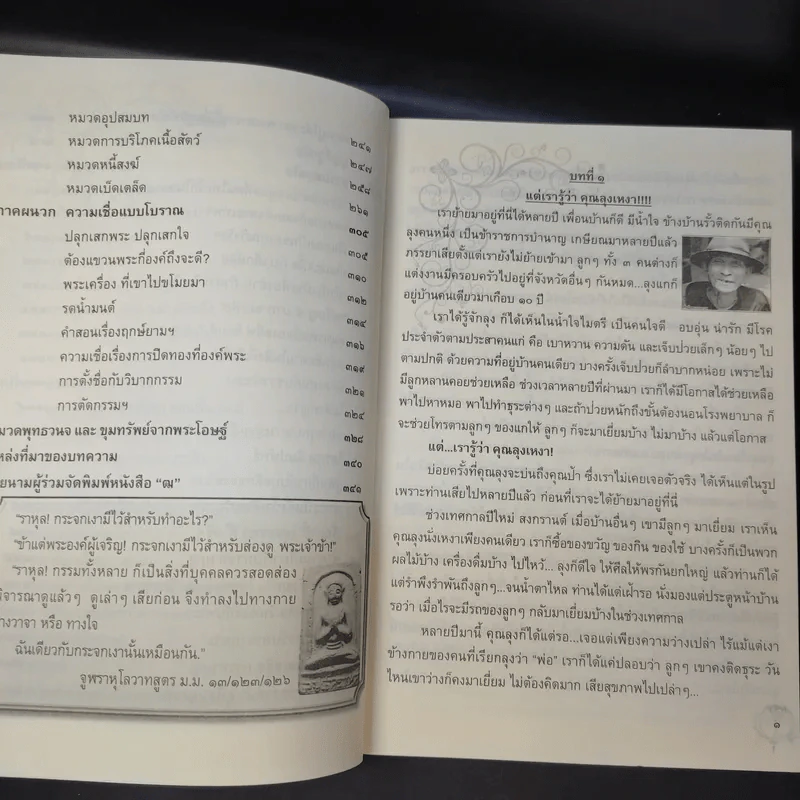 หมวดอุปสมบท
หมวดการบริโภคเนื้อสัตว์ ๒๔๑
หมวดหนี้สงฆ์ ๒๔๗
หมวดเบ็ดเตล็ด ๒๕๘
ภาคผนวก ความเชื่อแบบโบราณ ๒๖๑
ปลุกเสกพระ ปลุกเสกใจ ๓๐๕
ต้องแขวนพระกี่องค์ถึงจะดี? ๓๐๕
พระเครื่อง ที่เขาไปขโมยมา ๓๑๐
รดน้ำมนต์ ๓๑๒
คำสอนเรื่องฤกษ์ยามฯ ๓๑๔
ความเชื่อเรื่องการปิดทองที่องค์พระ ๓๑๖
การตั้งชื่อกับวิบากกรรม ๓๑๙
การตัดกรรมฯ ๓๒๑
มวดพุทธวนจ และ ขุมทรัพย์จากพระโอษฐ์ ๓๒๔
หล่งที่มาของบทความ ๓๒๘
ยนามผู้ร่วมจัดพิมพ์หนังสือ "ฒ" ๓๔๐
๓๔๑
"ราหุล! กระจกเงามีไว้สำหรับทำอะไร?"
"ข้าแต่พระองค์ผู้เจริญ! กระจกเงามีไว้สำหรับส่องดู พระเจ้าข้า!"
"ราหุล! กรรมทั้งหลาย ก็เป็นสิ่งที่บุคคลควรสอดส่อง
พิจารณาดูแล้วๆ ดูเล่าๆ เสียก่อน จึงทำลงไปทางกาย
างวาจา หรือ ทางใจ
ฉันเดียวกับกระจกเงานั้นเหมือนกัน."
จูฬราหุโลวาทสูตร ม.ม. ๑๓/๑๒๓/๑๒๖
บทที่ ๑
แต่เรารู้ว่า คุณลุงเหงา!!!!
เราย้ายมาอยู่ที่นี่ได้หลายปี เพื่อนบ้านก็ดี มีน้ำใจ ข้างบ้านรั้วติดกันมีคุณ
ลุงคนหนึ่ง เป็นข้าราชการบำนาญ เกษียณมาหลายปีแล้ว
ภรรยาเสียตั้งแต่เรายังไม่ย้ายเข้ามา ลูกๆ ทั้ง ๓ คนต่างก็
แต่งงานมีครอบครัวไปอยู่ที่จังหวัดอื่นๆ กันหมด...ลุงแกก็
อยู่บ้านคนเดียวมาเกือบ ๑๐ ปี
เราได้รู้จักลุง ก็ได้เห็นในน้ำใจไมตรี เป็นคนใจดี อบอุ่น น่ารัก มีโรค
ประจำตัวตามประสาคนแก่ คือ เบาหวาน ความดัน และเจ็บป่วยเล็กๆ น้อยๆ ไป
ตามปกติ ด้วยความที่อยู่บ้านคนเดียว บางครั้งเจ็บป่วยก็ลำบากหน่อย เพราะไม่
มีลูกหลานคอยช่วยเหลือ ช่วงเวลาหลายปีที่ผ่านมา เราก็ได้มีโอกาสได้ช่วยเหลือ
พาไปหาหมอ พาไปทำธุระต่างๆ และถ้าป่วยหนักถึงขั้นต้องนอนโรงพยาบาล ก็
จะช่วยโทรตามลูกๆ ของแกให้ ลูกๆ ก็จะมาเยี่ยมบ้าง ไม่มาบ้าง แล้วแต่โอกาส
แต่...เรารู้ว่า คุณลุงเหงา!
บ่อยครั้งที่คุณลุงจะบ่นถึงคุณป้า ซึ่งเราไม่เคยเจอตัวจริง ได้เห็นแต่ในรูป
เพราะท่านเสียไปหลายปีแล้ว ก่อนที่เราจะได้ย้ายมาอยู่ที่นี่
ช่วงเทศกาลปีใหม่ สงกรานต์ เมื่อบ้านอื่นๆ เขามีลูกๆ มาเยี่ยม เราเห็น
คุณลุงนั่งเหงาเพียงคนเดียว เราก็ซื้อของขวัญ ของกิน ของใช้ บางครั้งก็เป็นพวก
ผลไม้บ้าง เครื่องดื่มบ้าง ไปไหว้... ลุงก็ดีใจ ให้ศีลให้พรกันยกใหญ่ แล้วท่านก็ได้
แต่รำพึงรำพันถึงลูกๆ...จนน้ำตาไหล ท่านได้แต่เฝ้ารอ นั่งมองแต่ประตูหน้าบ้าน
รอว่า เมื่อไรจะมีรถของลูกๆ กลับมาเยี่ยมบ้างในช่วงเทศกาล
หลายปีมานี้ คุณลุงก็ได้แต่รอ...เจอแต่เพียงความว่างเปล่า ไร้แม้แต่เงา
ข้างกายของคนที่เรียกลุงว่า "พ่อ" เราก็ได้แค่ปลอบว่า ลูกๆ เขาคงติดธุระ วัน
ไหนเขาว่างก็คงมาเยี่ยม ไม่ต้องคิดมาก เสียสุขภาพไปเปล่าๆ...
๑